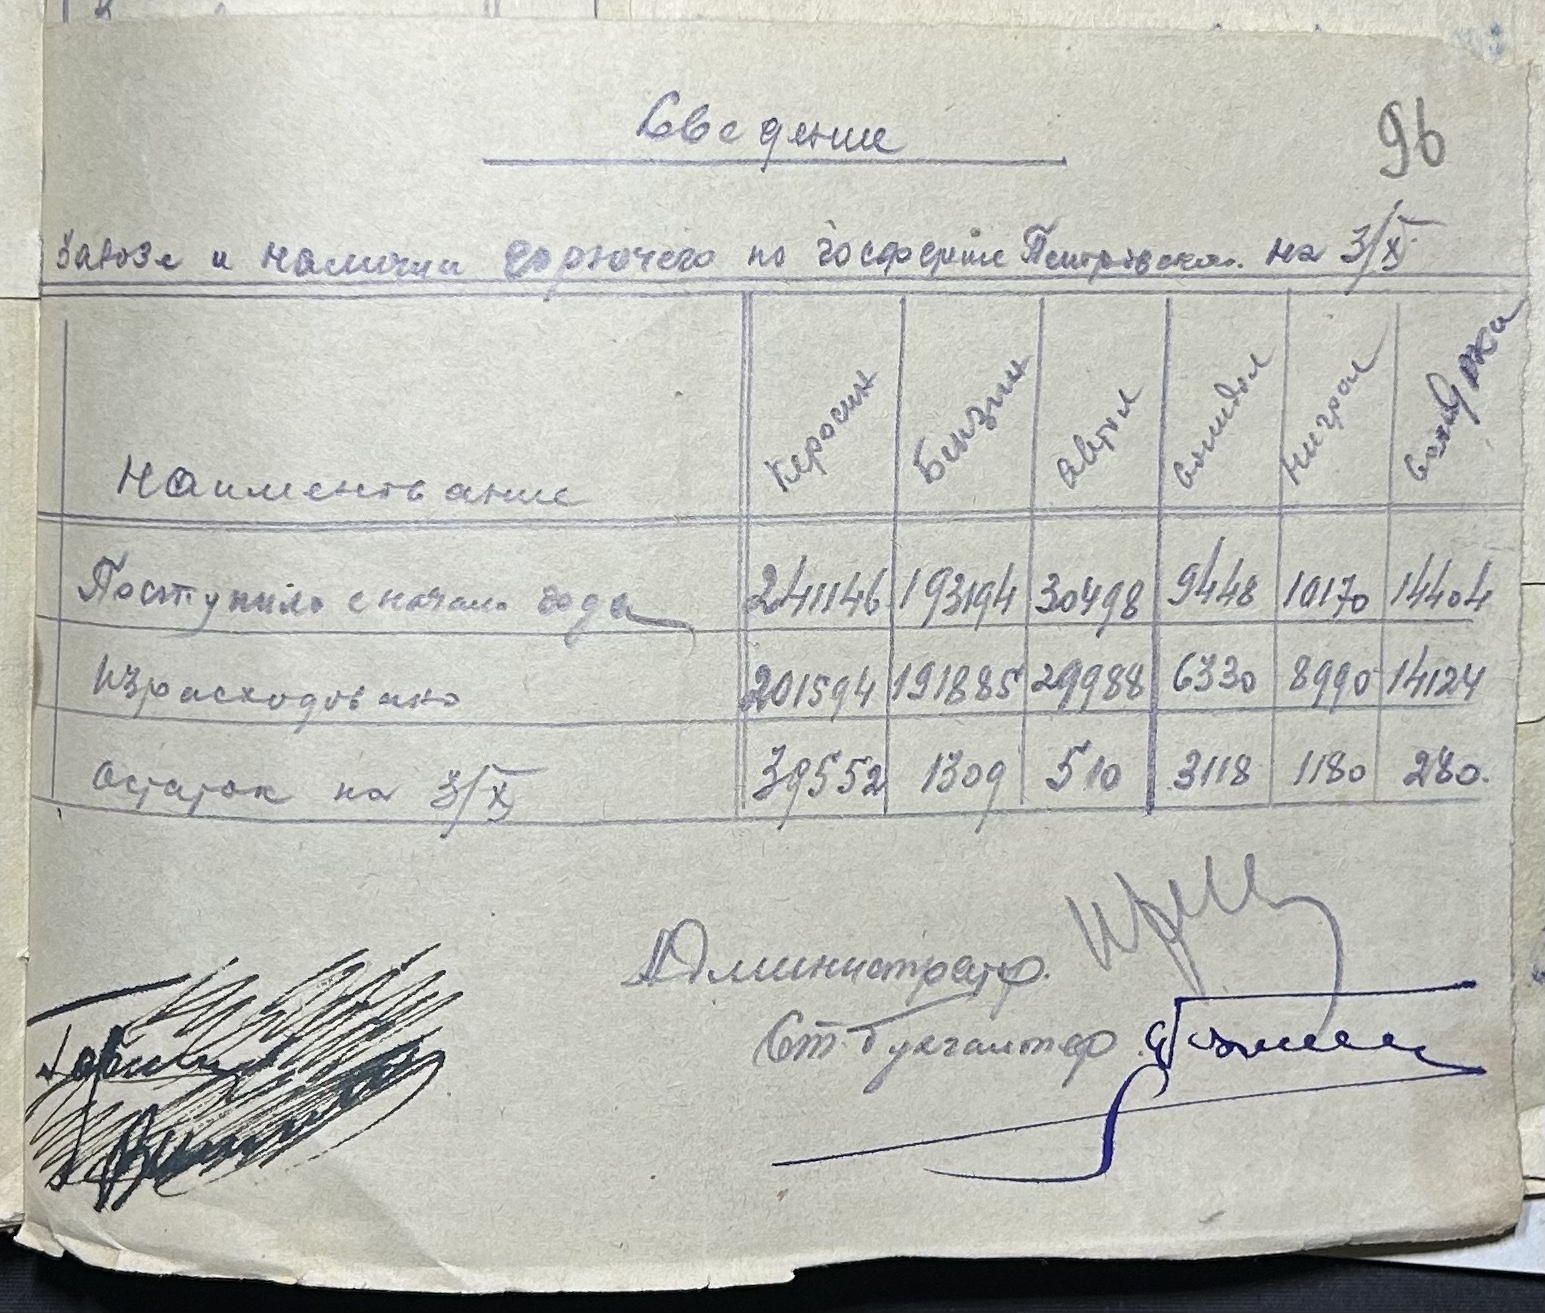 Сведение
96
Завозе и наличии горючего по госферме Петровская. на 3/X
Наименование Керосин Бензин автол солидол нигрол
Поступило с начала года 241146 193194 30498 9448 10170 14404
Израсходовано 201594 191885 29988 6330 8990 14124
Остаток на 3/X 39552 1309 510 3118 1180 280.
Администратр.
Ст. бухгалтер.